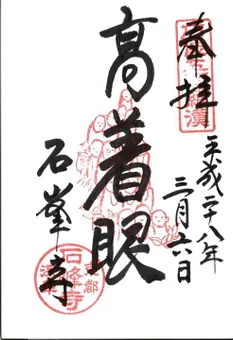 奉拝
平成二十八年
三月六日
高着眼
石峯寺
石峰寺
京都
深草